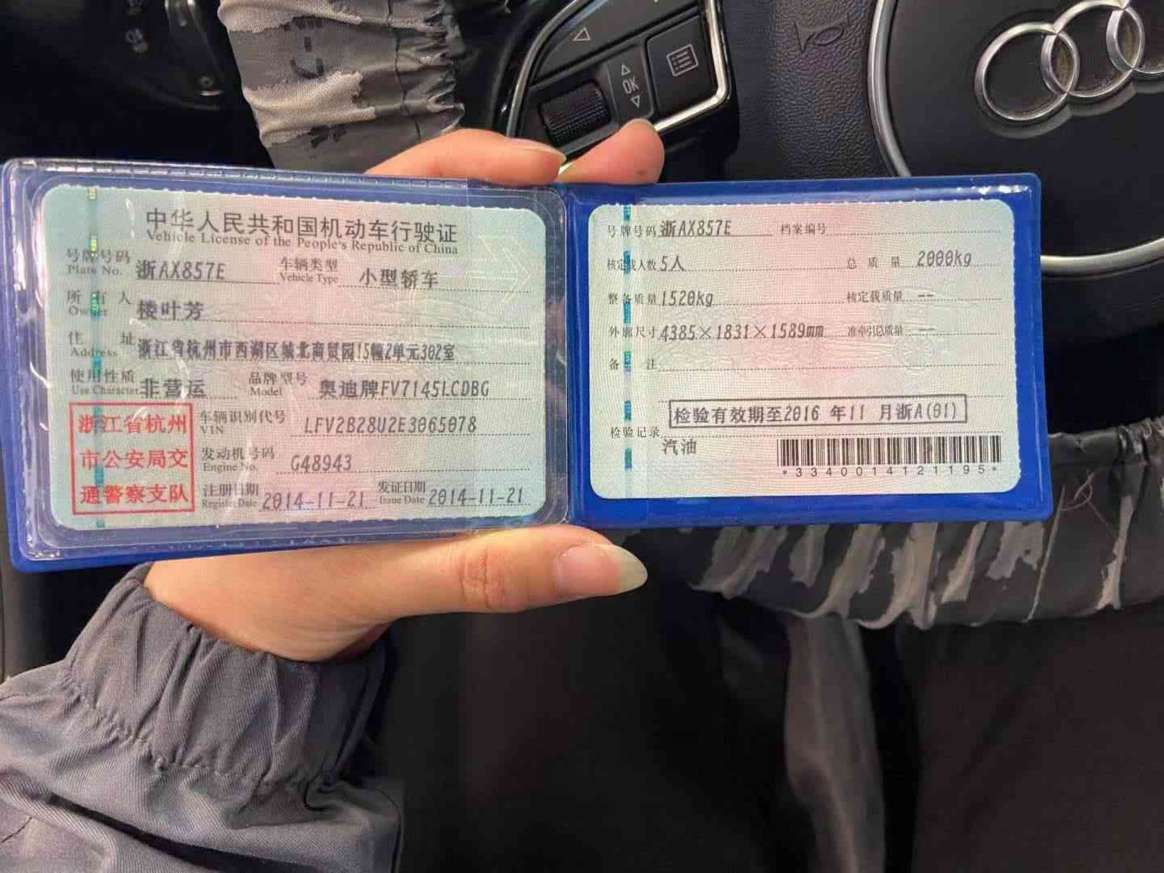 OK
中华人民共和国机动车行驶证
Vehicle License of the People's Republic of China
号牌号码 浙AX857E 车辆类型 小型轿车
Plate No. Vehicle Type
所有人 楼叶芳
Owner
住址 浙江省杭州市西湖区城北商贸园15幢2单元302室
Address
使用性质 非营运 品牌型号 奥迪牌FV7145LCDBG
Use Character Model
浙江省杭州
市公安局交
通警察支队
车辆识别代号 LFV2B28U2E3065078
VIN
发动机号码 G48943
Engine No.
注册日期 2014-11-21 发证日期 2014-11-21
Register Date Issue Date
号牌号码 浙AX857E 档案编号
核定载人数 5人 总质量 2000kg
整备质量 1520kg 核定载质量 --
外廓尺寸 4385×1831×1589mm 准牵引总质量 --
备注
检验有效期至2016 年11 月浙A(01)
检验记录
汽油
*3340014121195*